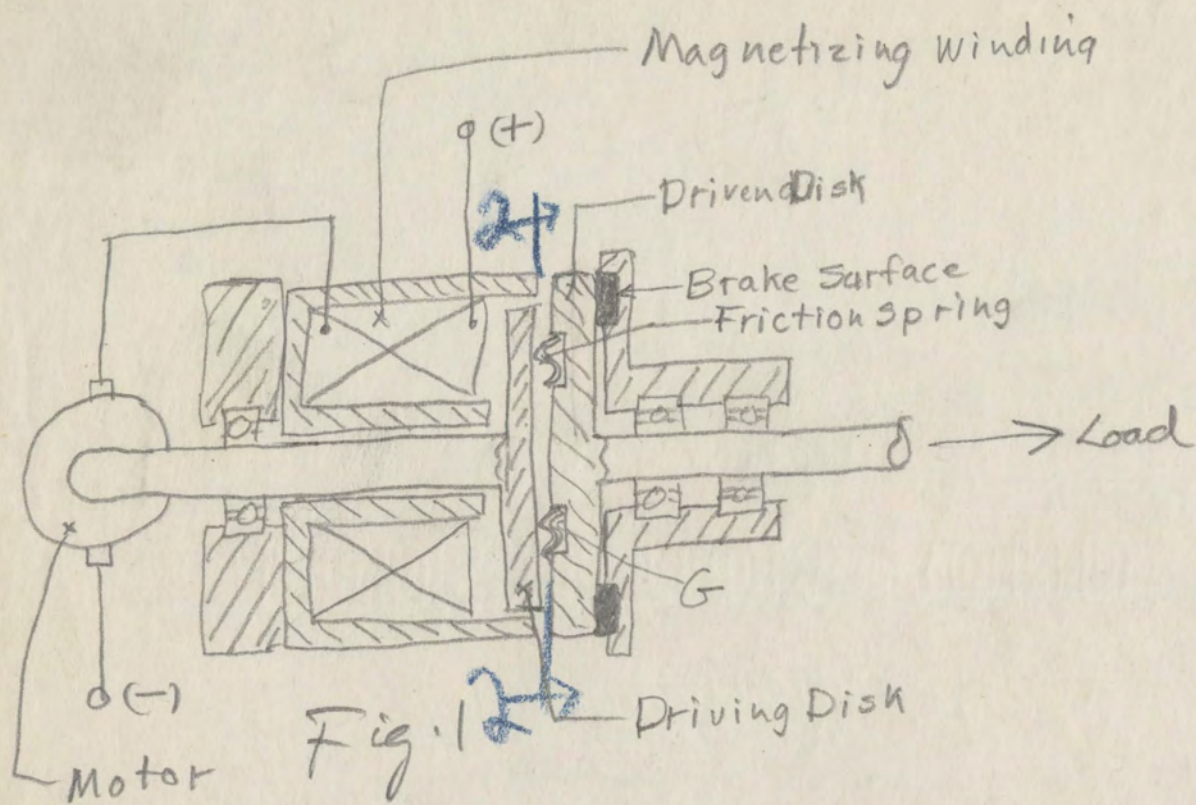 Magnetizing winding
(+)
2
Driven Disk
Brake Surface
Friction Spring
Load
G
(-)
Fig. 1
2
Driving Disk
Motor